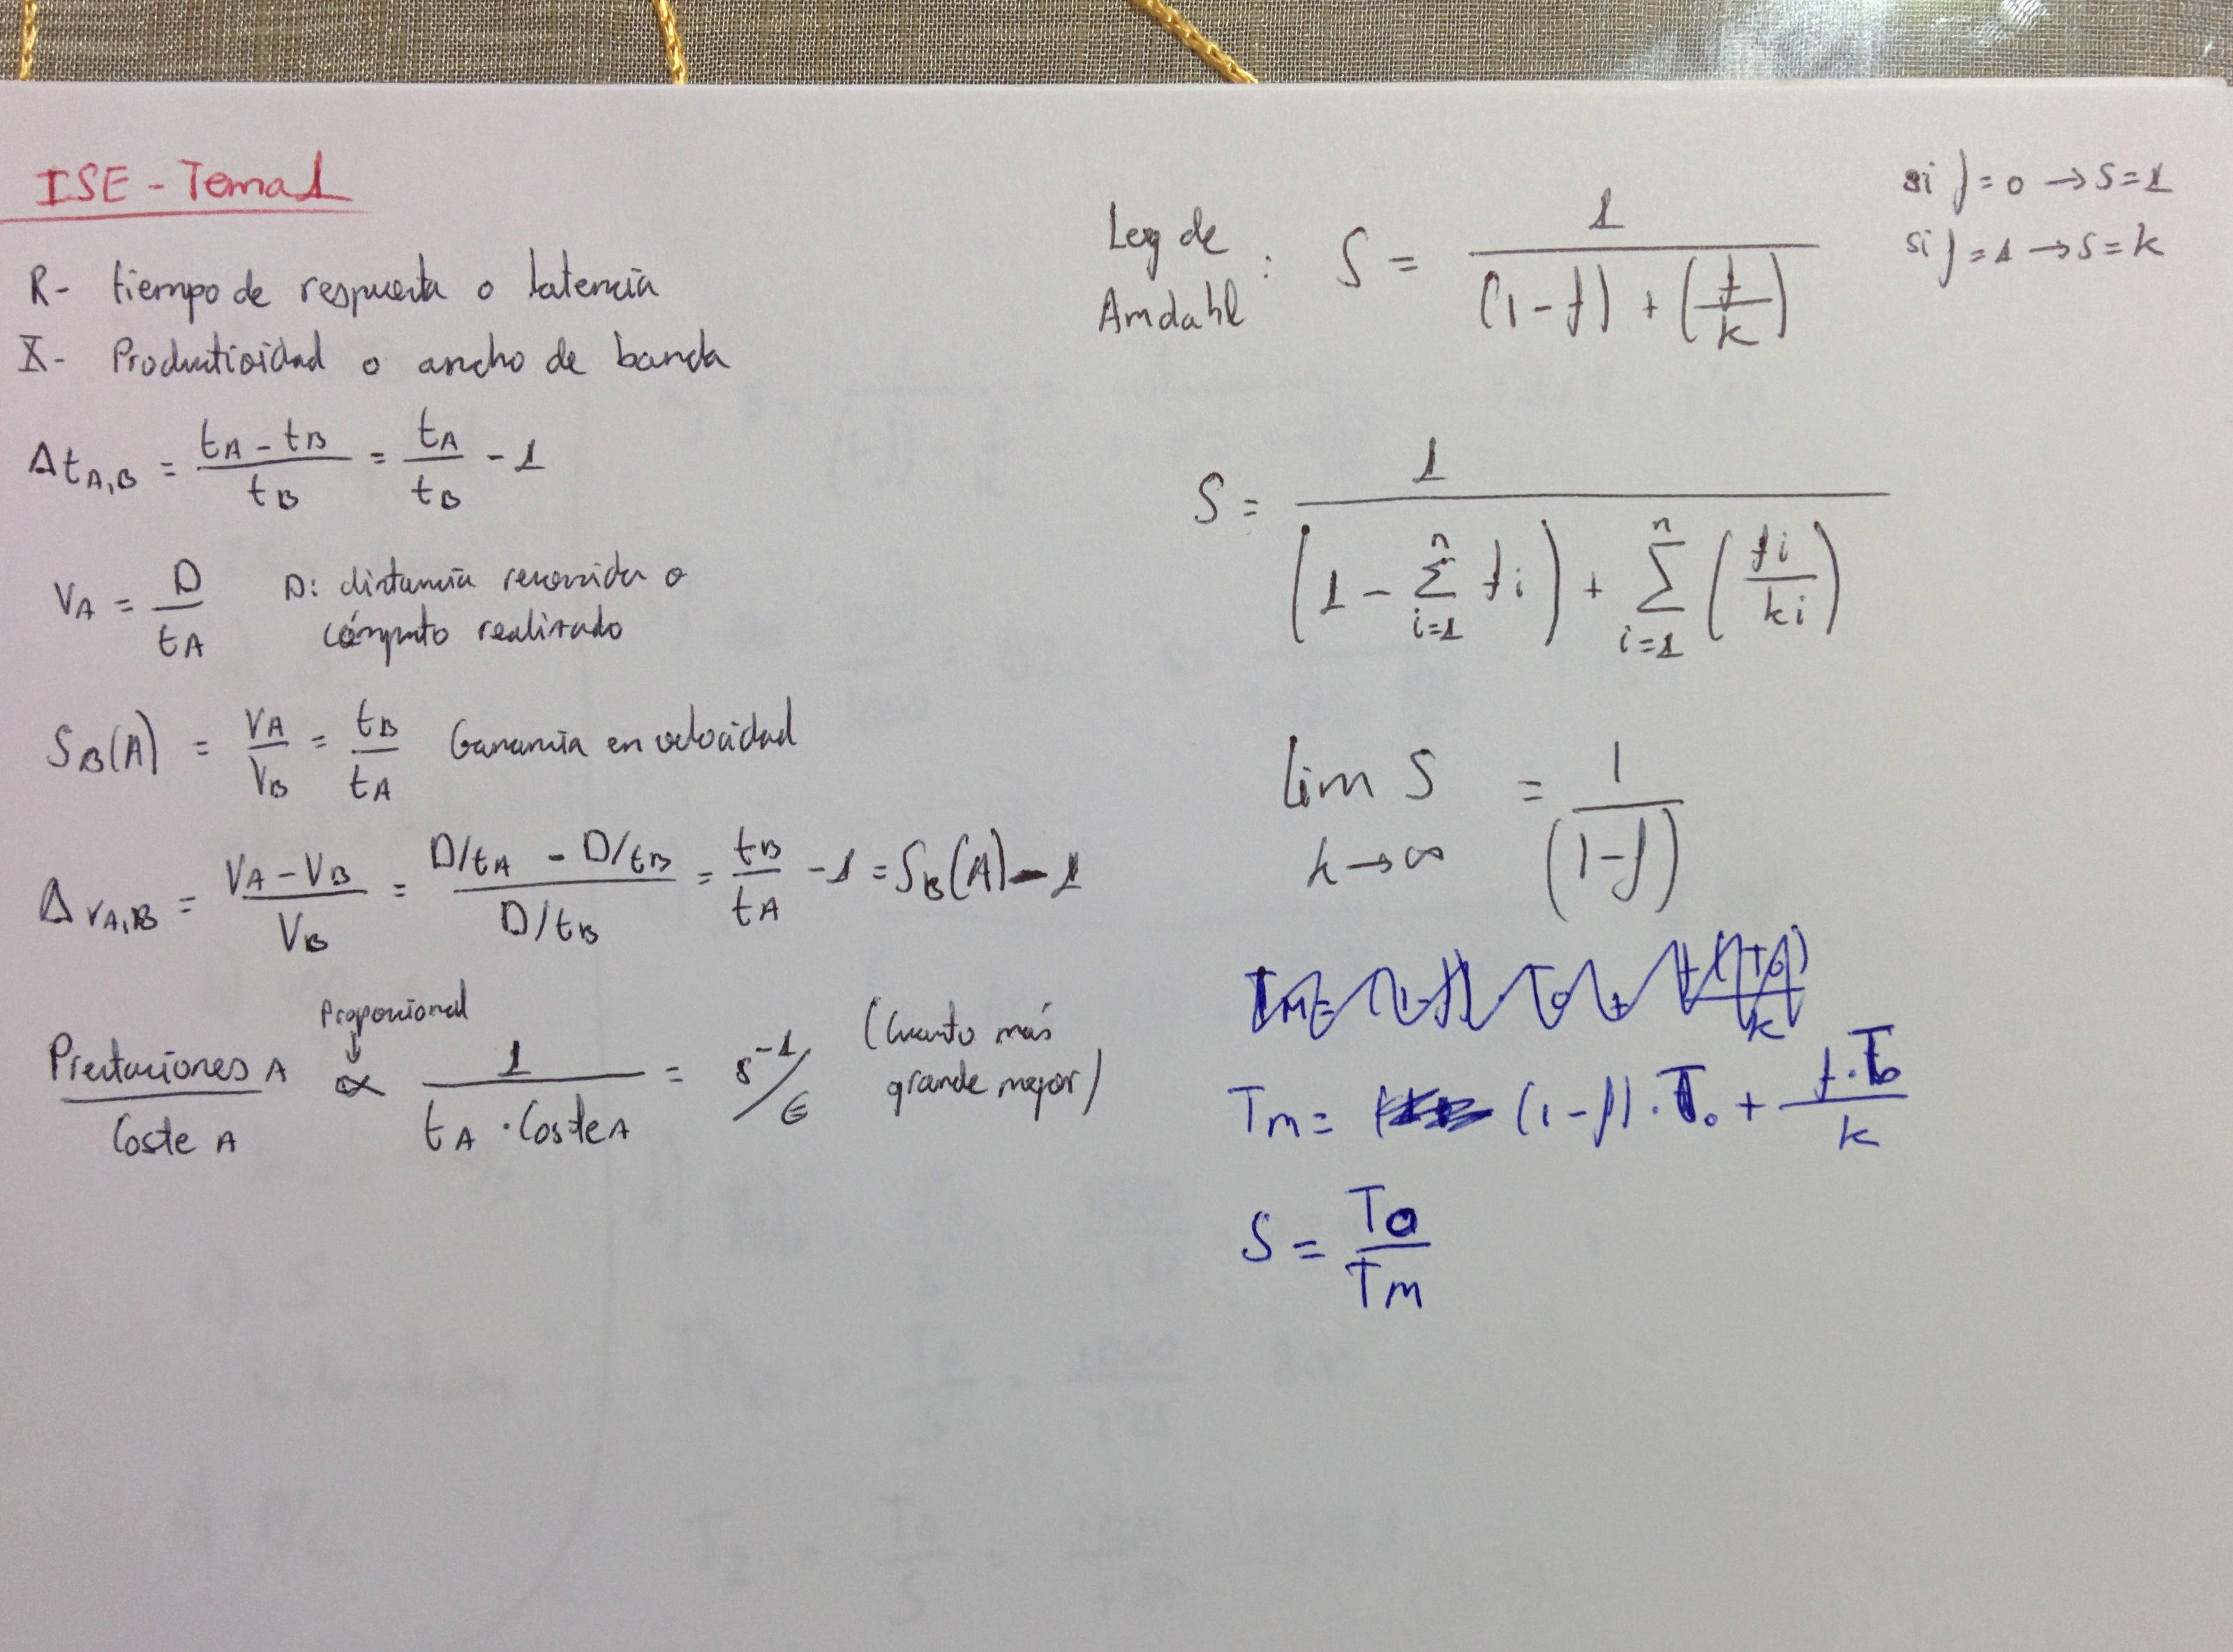 ISE - Tema 1
R- tiempo de respuesta o latencia
X- Productividad o ancho de banda
Δt_{A,B} = (t_A - t_B)/t_B = t_A/t_B - 1
V_A = D/t_A   D: distancia recorrida o
cómputo realizado
S_B(A) = V_A/V_B = t_B/t_A   Ganancia en velocidad
Δ_{VA,B} = (V_A - V_B)/V_B = (D/t_A - D/t_B)/(D/t_B) = t_B/t_A - 1 = S_B(A) - 1
Proporcional
↓
Prestaciones A/Coste A ∝ 1/(t_A · Coste A) = s^{-1}/€   (Cuanto más
grande mejor)
Ley de
Amdahl : S = 1/((1-f) + (f/k))
si f=0 → S=1
si f=1 → S=k
S = 1/((1 - Σ_{i=1}^{n} fi) + Σ_{i=1}^{n} (fi/ki))
lim S = 1/(1-f)
k→∞
Tm = (1-f)·T_0 + f·T_0/k
S = T_0/Tm